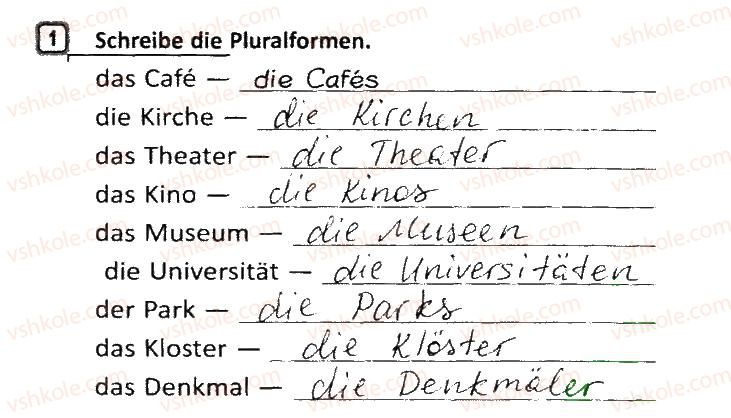 1 Schreibe die Pluralformen.
das Café — die Cafés
die Kirche — die Kirchen
das Theater — die Theater
das Kino — die Kinos
das Museum — die Museen
die Universität — die Universitäten
der Park — die Parks
das Kloster — die Klöster
das Denkmal — die Denkmäler